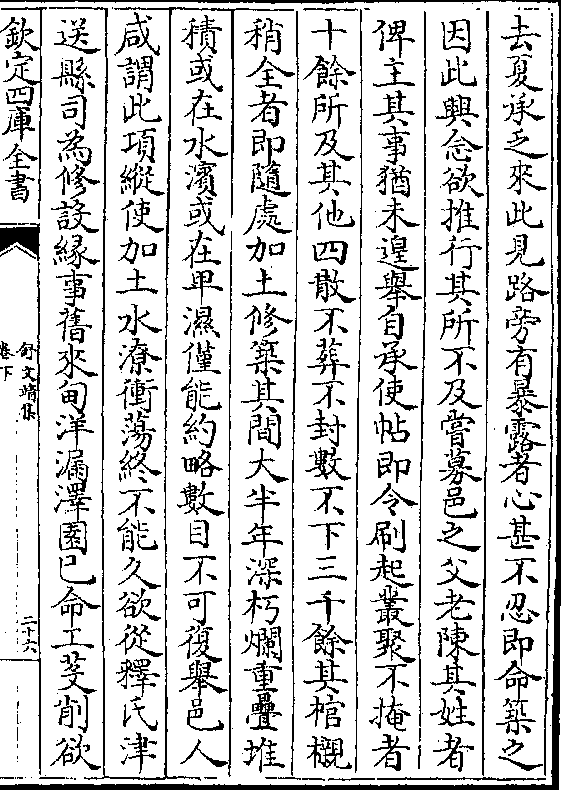 去夏承乏來此見路旁有暴露者心甚不忍即命築之
因此興念欲推行其所不及嘗募邑之父老陳其姓者
俾主其事猶未遑舉自承使帖即令刷起叢聚不掩者
十餘所及其他四散不葬不封數不下三千餘其棺櫬
稍全者即隨處加土修築其間大半年深朽爛重疊堆
積或在水濱或在卑濕僅能約略數目不可復舉邑人
咸謂此項縱使加土水潦衝蕩終不能久欲從釋氏津
送縣司為修設緣事舊來甸洋漏澤園已命工芟削欲
欽定四庫全書
舒文靖集
卷下
二十六